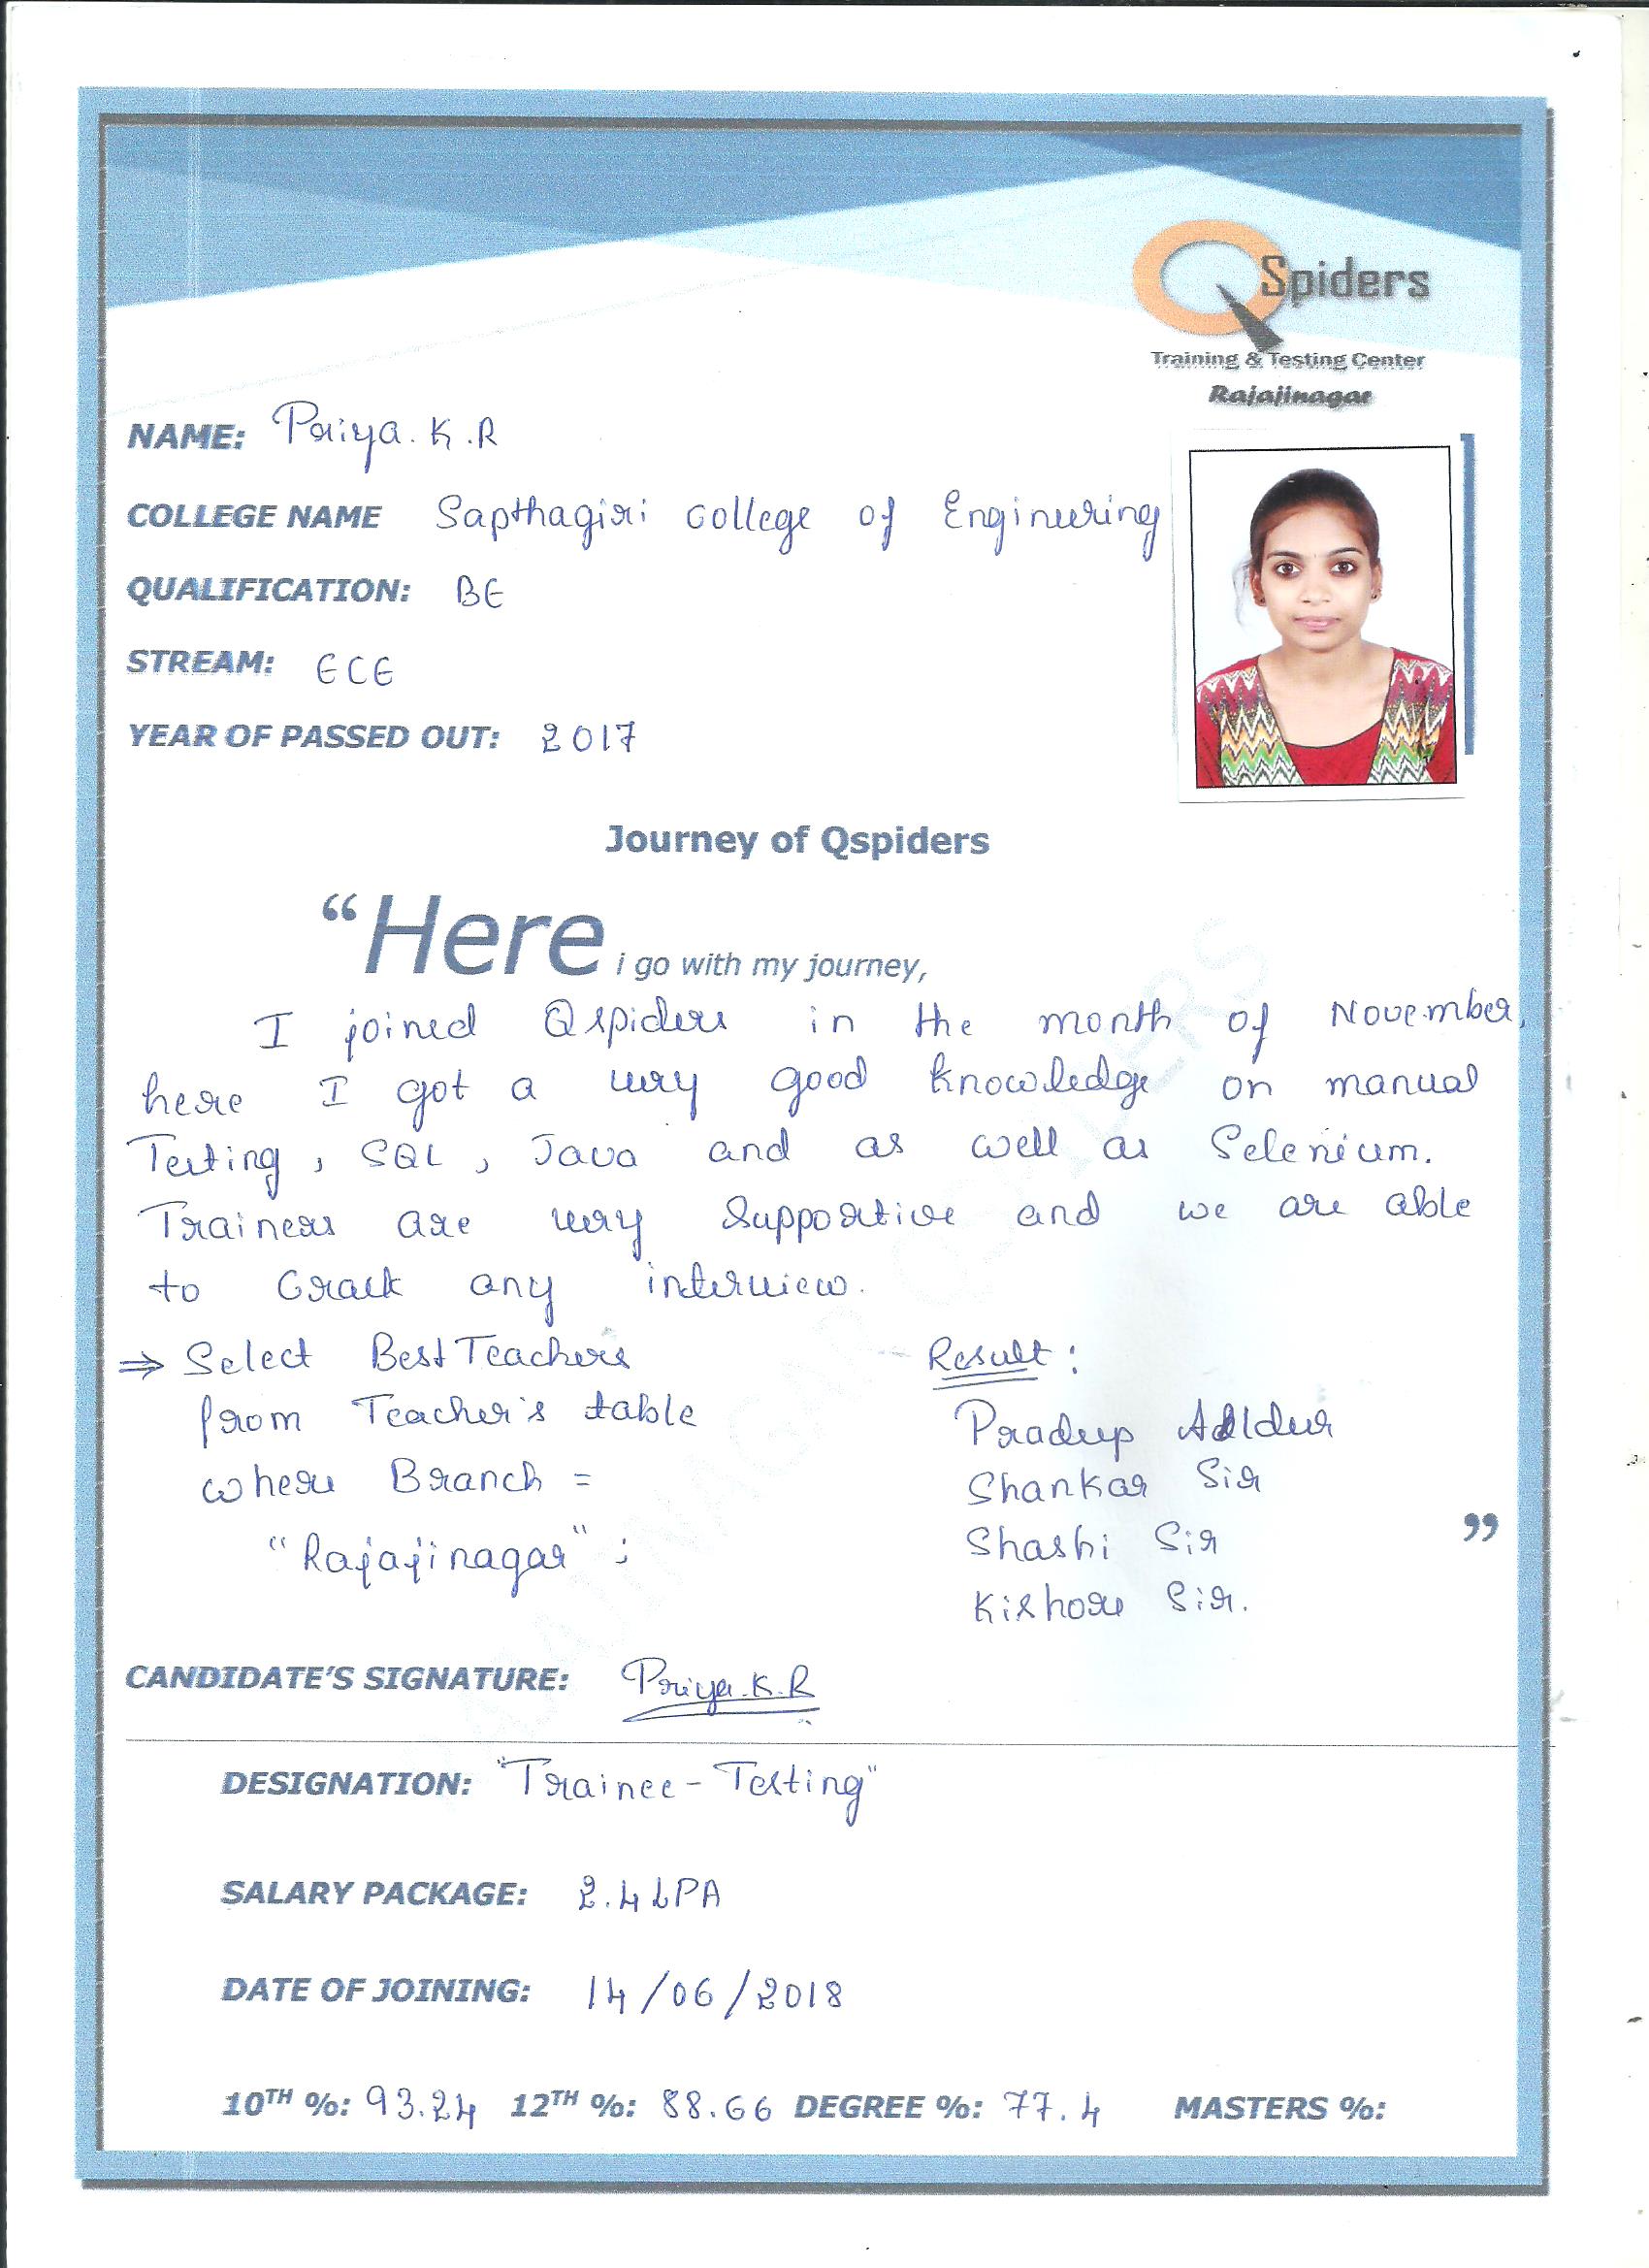 QSpiders
Training & Testing Center
Rajajinagar
NAME: Priya. K. R
COLLEGE NAME Sapthagiri college of Engineering
QUALIFICATION: BE
STREAM: ECE
YEAR OF PASSED OUT: 2017
Journey of Qspiders
“Here i go with my journey,
I joined Qspiders in the month of November,
here I got a very good knowledge on manual
Testing, SQL, Java and as well as Selenium.
Trainers are very Supportive and we are able
to Crack any interview.
⇒ Select Best Teachers
from Teacher's table
where Branch =
"Rajajinagar" ;
Result :
Pradeep
Shankar Sir
Shashi Sir
Kishore Sir.
”
CANDIDATE’S SIGNATURE: Priya.K.R
DESIGNATION: "Trainee - Testing"
SALARY PACKAGE: 2.4 LPA
DATE OF JOINING: 14/06/2018
10TH %: 93.24 12TH %: 88.66 DEGREE %: 77.4 MASTERS %: